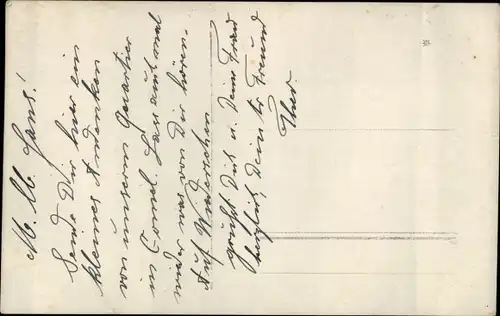 M. lb. Hans!
Sende Dir hier ein
kleines Andenken
von unserem Quartier
in Lass auch mal
wieder was von Dir hören.
Auf Wiedersehen
grüßt Dich u. Deine Frau
herzlich Dein tr. Freund